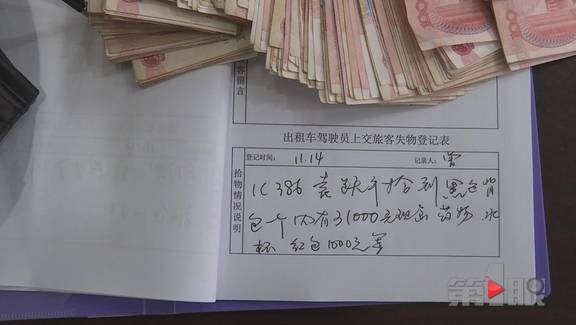 客留言
出租车驾驶员上交旅客失物登记表
登记时间： 11.14 记录人：曾
拾物情况说明
1C386 袁跃平拾到黑色背
包一个 内有31000元现金 药物 水
杯 红包1000元等
第1眼
100